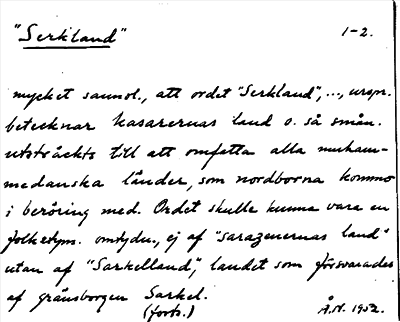 "Serkland" 1-2.
mycket sannol., att ordet "Serkland", ..., urspr.
betecknar kasarernas land o. så smån.
utsträckts till att omfatta alla muham-
medanska länder, som nordborna kommo
i beröring med. Ordet skulle kunna vara en
folketym. omtydn., ej af "sarazenernas land"
utan af "Sarkelland", landet som försvarades
af gränsborgen Sarkel.
(forts.) Å.N. 1952.